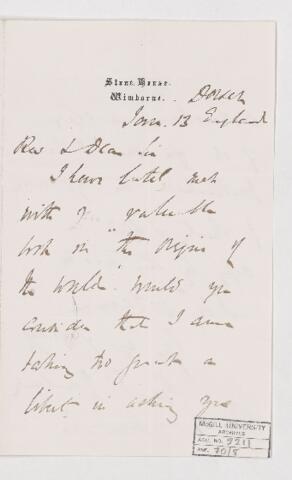 Stone House.
Wimborne. Dorset
Jan. 13 England
Rev & Dear Sir
I have lately met
with yr valuable
work on "the Origin of
the World" would you
consider that I am
taking too great a
liberty in asking you
McGILL UNIVERSITY
ARCHIVES
ACC. NO. 9211
REF. 70/8